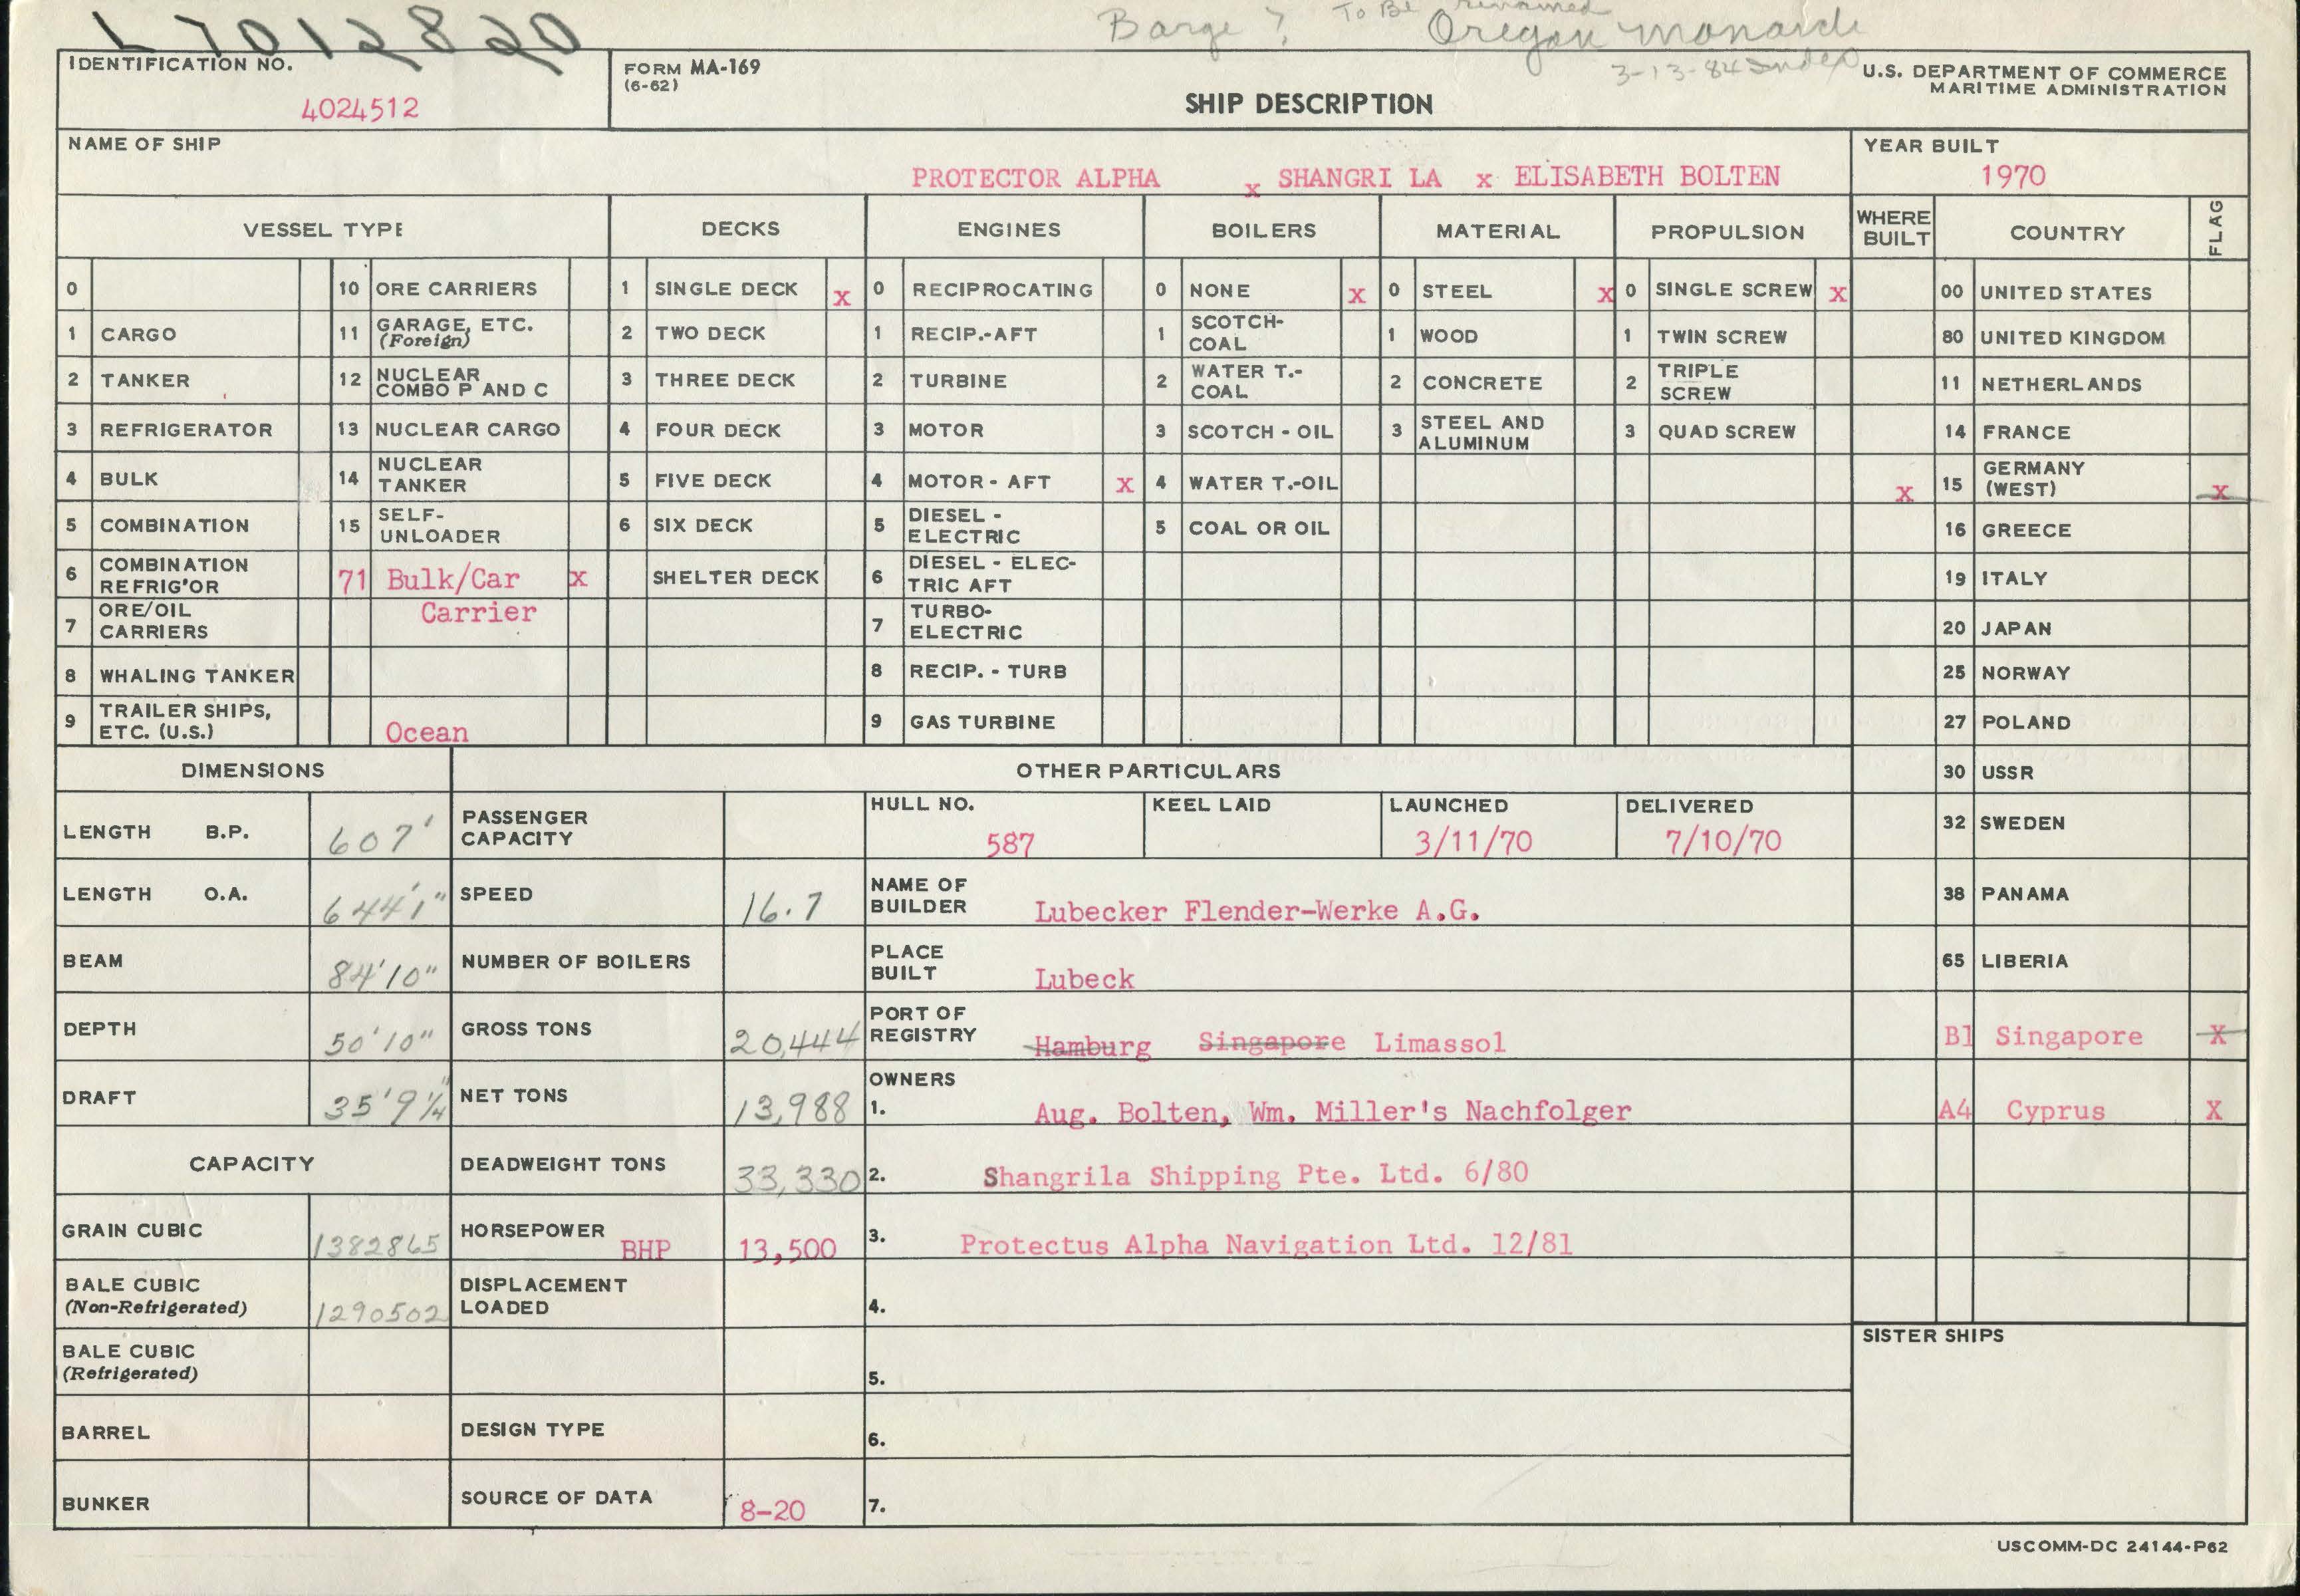 L7012820
Barge ? To Be renamed
Oregon monarch
3-13-84 Index
IDENTIFICATION NO.
4024512
FORM MA-169
(6-62)
SHIP DESCRIPTION
U.S. DEPARTMENT OF COMMERCE
MARITIME ADMINISTRATION
NAME OF SHIP
PROTECTOR ALPHA x SHANGRI LA x ELISABETH BOLTEN
YEAR BUILT
1970
VESSEL TYPE DECKS ENGINES BOILERS MATERIAL PROPULSION WHERE BUILT COUNTRY FLAG
0 10 ORE CARRIERS 1 SINGLE DECK x 0 RECIPROCATING 0 NONE x 0 STEEL x 0 SINGLE SCREW x 00 UNITED STATES
1 CARGO 11 GARAGE, ETC. (Foreign) 2 TWO DECK 1 RECIP.-AFT 1 SCOTCH-COAL 1 WOOD 1 TWIN SCREW 80 UNITED KINGDOM
2 TANKER 12 NUCLEAR COMBO P AND C 3 THREE DECK 2 TURBINE 2 WATER T.-COAL 2 CONCRETE 2 TRIPLE SCREW 11 NETHERLANDS
3 REFRIGERATOR 13 NUCLEAR CARGO 4 FOUR DECK 3 MOTOR 3 SCOTCH - OIL 3 STEEL AND ALUMINUM 3 QUAD SCREW 14 FRANCE
4 BULK 14 NUCLEAR TANKER 5 FIVE DECK 4 MOTOR - AFT x 4 WATER T.-OIL x 15 GERMANY (WEST) x
5 COMBINATION 15 SELF-UNLOADER 6 SIX DECK 5 DIESEL - ELECTRIC 5 COAL OR OIL 16 GREECE
6 COMBINATION REFRIG'OR 71 Bulk/Car x SHELTER DECK 6 DIESEL - ELEC-TRIC AFT 19 ITALY
7 ORE/OIL CARRIERS Carrier 7 TURBO-ELECTRIC 20 JAPAN
8 WHALING TANKER 8 RECIP. - TURB 25 NORWAY
9 TRAILER SHIPS, ETC. (U.S.) Ocean 9 GAS TURBINE 27 POLAND
DIMENSIONS OTHER PARTICULARS 30 USSR
LENGTH B.P. 607' PASSENGER CAPACITY HULL NO. 587 KEEL LAID LAUNCHED 3/11/70 DELIVERED 7/10/70 32 SWEDEN
LENGTH O.A. 644'1" SPEED 16.7 NAME OF BUILDER Lubecker Flender-Werke A.G. 38 PANAMA
BEAM 84'10" NUMBER OF BOILERS PLACE BUILT Lubeck 65 LIBERIA
DEPTH 50'10" GROSS TONS 20,444 PORT OF REGISTRY Hamburg Singapore Limassol B1 Singapore X
DRAFT 35'9¼" NET TONS 13,988 OWNERS 1. Aug. Bolten, Wm. Miller's Nachfolger A4 Cyprus X
CAPACITY DEADWEIGHT TONS 33,330 2. Shangrila Shipping Pte. Ltd. 6/80
GRAIN CUBIC 1382865 HORSEPOWER BHP 13,500 3. Protectus Alpha Navigation Ltd. 12/81
BALE CUBIC (Non-Refrigerated) 1290502 DISPLACEMENT LOADED 4.
SISTER SHIPS
BALE CUBIC (Refrigerated) 5.
BARREL DESIGN TYPE 6.
BUNKER SOURCE OF DATA 8-20 7.
USCOMM-DC 24144-P62